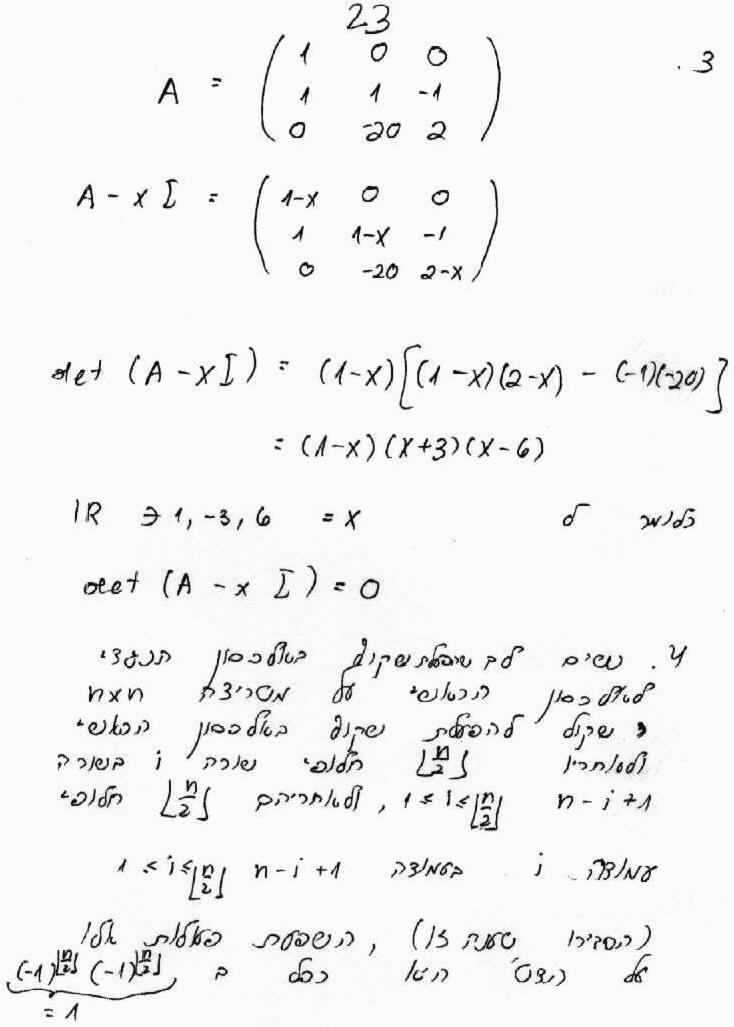 23
3.
A = ( 1 0 0
1 1 -1
0 -20 2 )
A - x I = ( 1-x 0 0
1 1-x -1
0 -20 2-x )
det (A - x I) = (1-x)[(1-x)(2-x) - (-1)(-20)]
= (1-x)(x+3)(x-6)
כלומר ל x = 1, -3, 6 ∈ IR
det (A - x I) = 0
4. נשים לב שהפעלת שיקוף באלכסון הנגדי
לאלכסון הראשי על מטריצת n×n
שקול להפעלת שיקוף באלכסון הראשי
ולאחריו ⌊n/2⌋ חלופי שורה i בשורה
n - i + 1 1 ≤ i ≤ ⌊n/2⌋, ולאחריהם ⌊n/2⌋ חלופי
עמודה i בעמודה n - i + 1 1 ≤ i ≤ ⌊n/2⌋
(הסבירו טענה זו), השפעת פעולות אלו
על הדט' היא כפל ב (-1)^⌊n/2⌋ (-1)^⌊n/2⌋
= 1